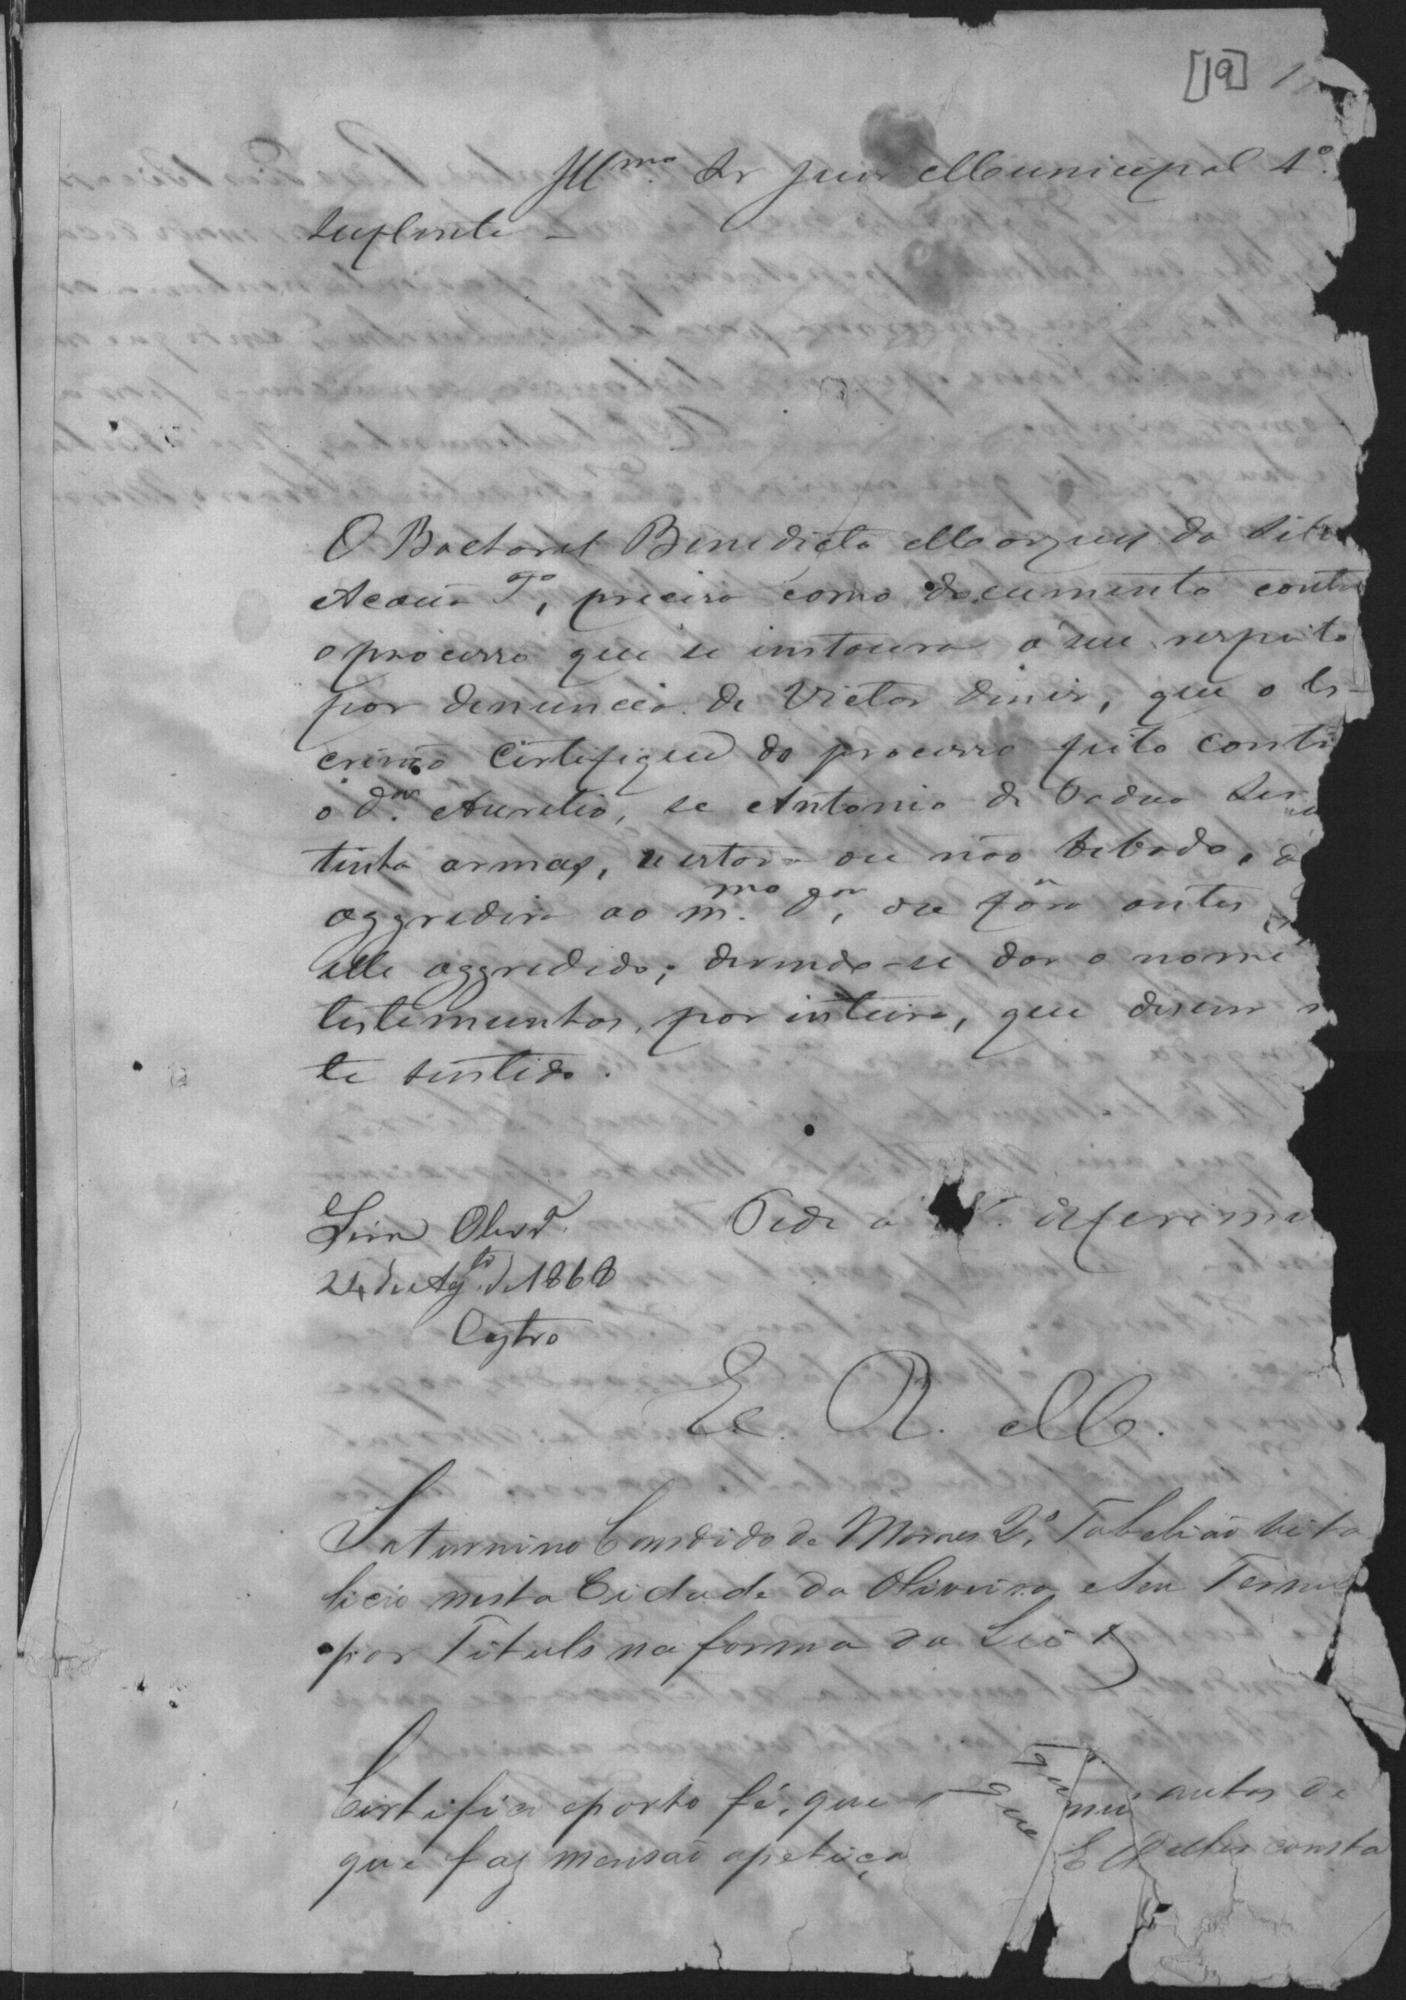 [19]
Illmo. Sr Juis Municipal 4º
Suplente –
O Bacharel Benedicto Marques da Silva
Acauã Tº, precisa como documento contra
o processo que se instaura á seu respeito
por denuncia de Victor Diniz, que o Es-
crivão Certifique do processo feito contra
o dor. Aurelio, se Antonio de Padua
tinha armas, se estava ou não bebado,
aggredira ao mmo. dor, ou fôra antes
elle aggredido; devendo-se dar o nome
testemunhas, por inteiro, que disem
te sentido.
Sim Olivrª.
24 de Agto. de 1868
Castro
Pede a V. deferim
E. R. M.
Saturnino Candido de Moraes 2º Tabelião vita
licio nesta Cidade da Oliveira e seu Termo
por Titulo na forma da Lei &
Certifico e porto fé, que nus autos de
que faz mensão apetiçao E delles consta